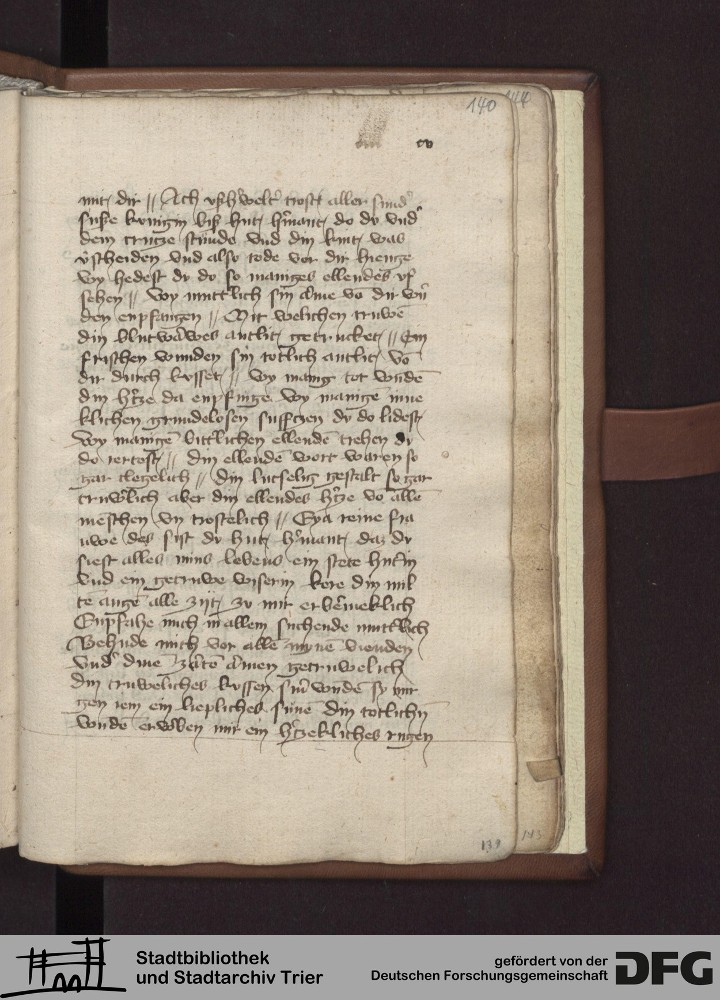 140 144
cv
mit dir // Ach vßh'welt' trost aller sund'
susse kunigin biß hut h'mant do du vnd'
dem crucze stunde vnd din kint was
v'scheiden vnd also tode vor dir hienge
wy hedest du do so maniges ellendes vf
sehen // wy mutt'lich sin arme vo dir wu'
den enpfangen // Mit welichen truwe
din blutvarwes antlit getrucket //
frischen wunden sin totlich antlit vo
dir durch kusset // wy manig tot wunde
din h'cze da enpfinge wy manige inne
klichen grundelosen suffczen du do lidest
wy manige bittlichen ellende trehen du
do // din ellende wort waren so
gar clegelich // din lutselig gestalt so gar
truw'lich aber din ellendes h'cze vo alle
menschen vn trostelich // Eya reine fra
uwe des sist du hut h'mant daz du
siest alles mins lebens ein stete hut'in
vnd ein getruwe wiserin kere din mil
te auge alle zijt zu mir erb'meklich
Enpfahe mich in allem suchende mutt'lich
Behude mich vor alle myne vienden
vnd' dine zarte armen getruwelich
din truweliches kussen sin' wunde sy mir
gen iem ein liepliches sune din totlichn
wunde erw'ben mir ein h'czekliches rugen
139 143
Stadtbibliothek
und Stadtarchiv Trier
gefördert von der
Deutschen Forschungsgemeinschaft
DFG